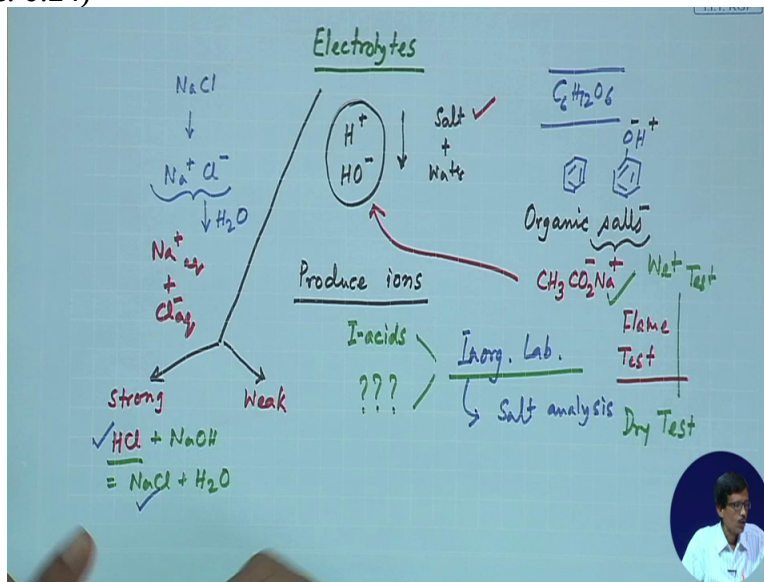 Electrolytes
NaCl
Na⁺ Cl⁻
H₂O
Na⁺aq
+
Cl⁻aq
H⁺
HO⁻
Salt
+
Water
C₆H₁₂O₆
O⁻H⁺
Organic salts⁻
CH₃CO₂⁻Na⁺
Wet Test
Flame
Test
Dry Test
Produce ions
I-acids
???
Inorg. Lab.
Salt analysis
Strong
Weak
HCl + NaOH
= NaCl + H₂O